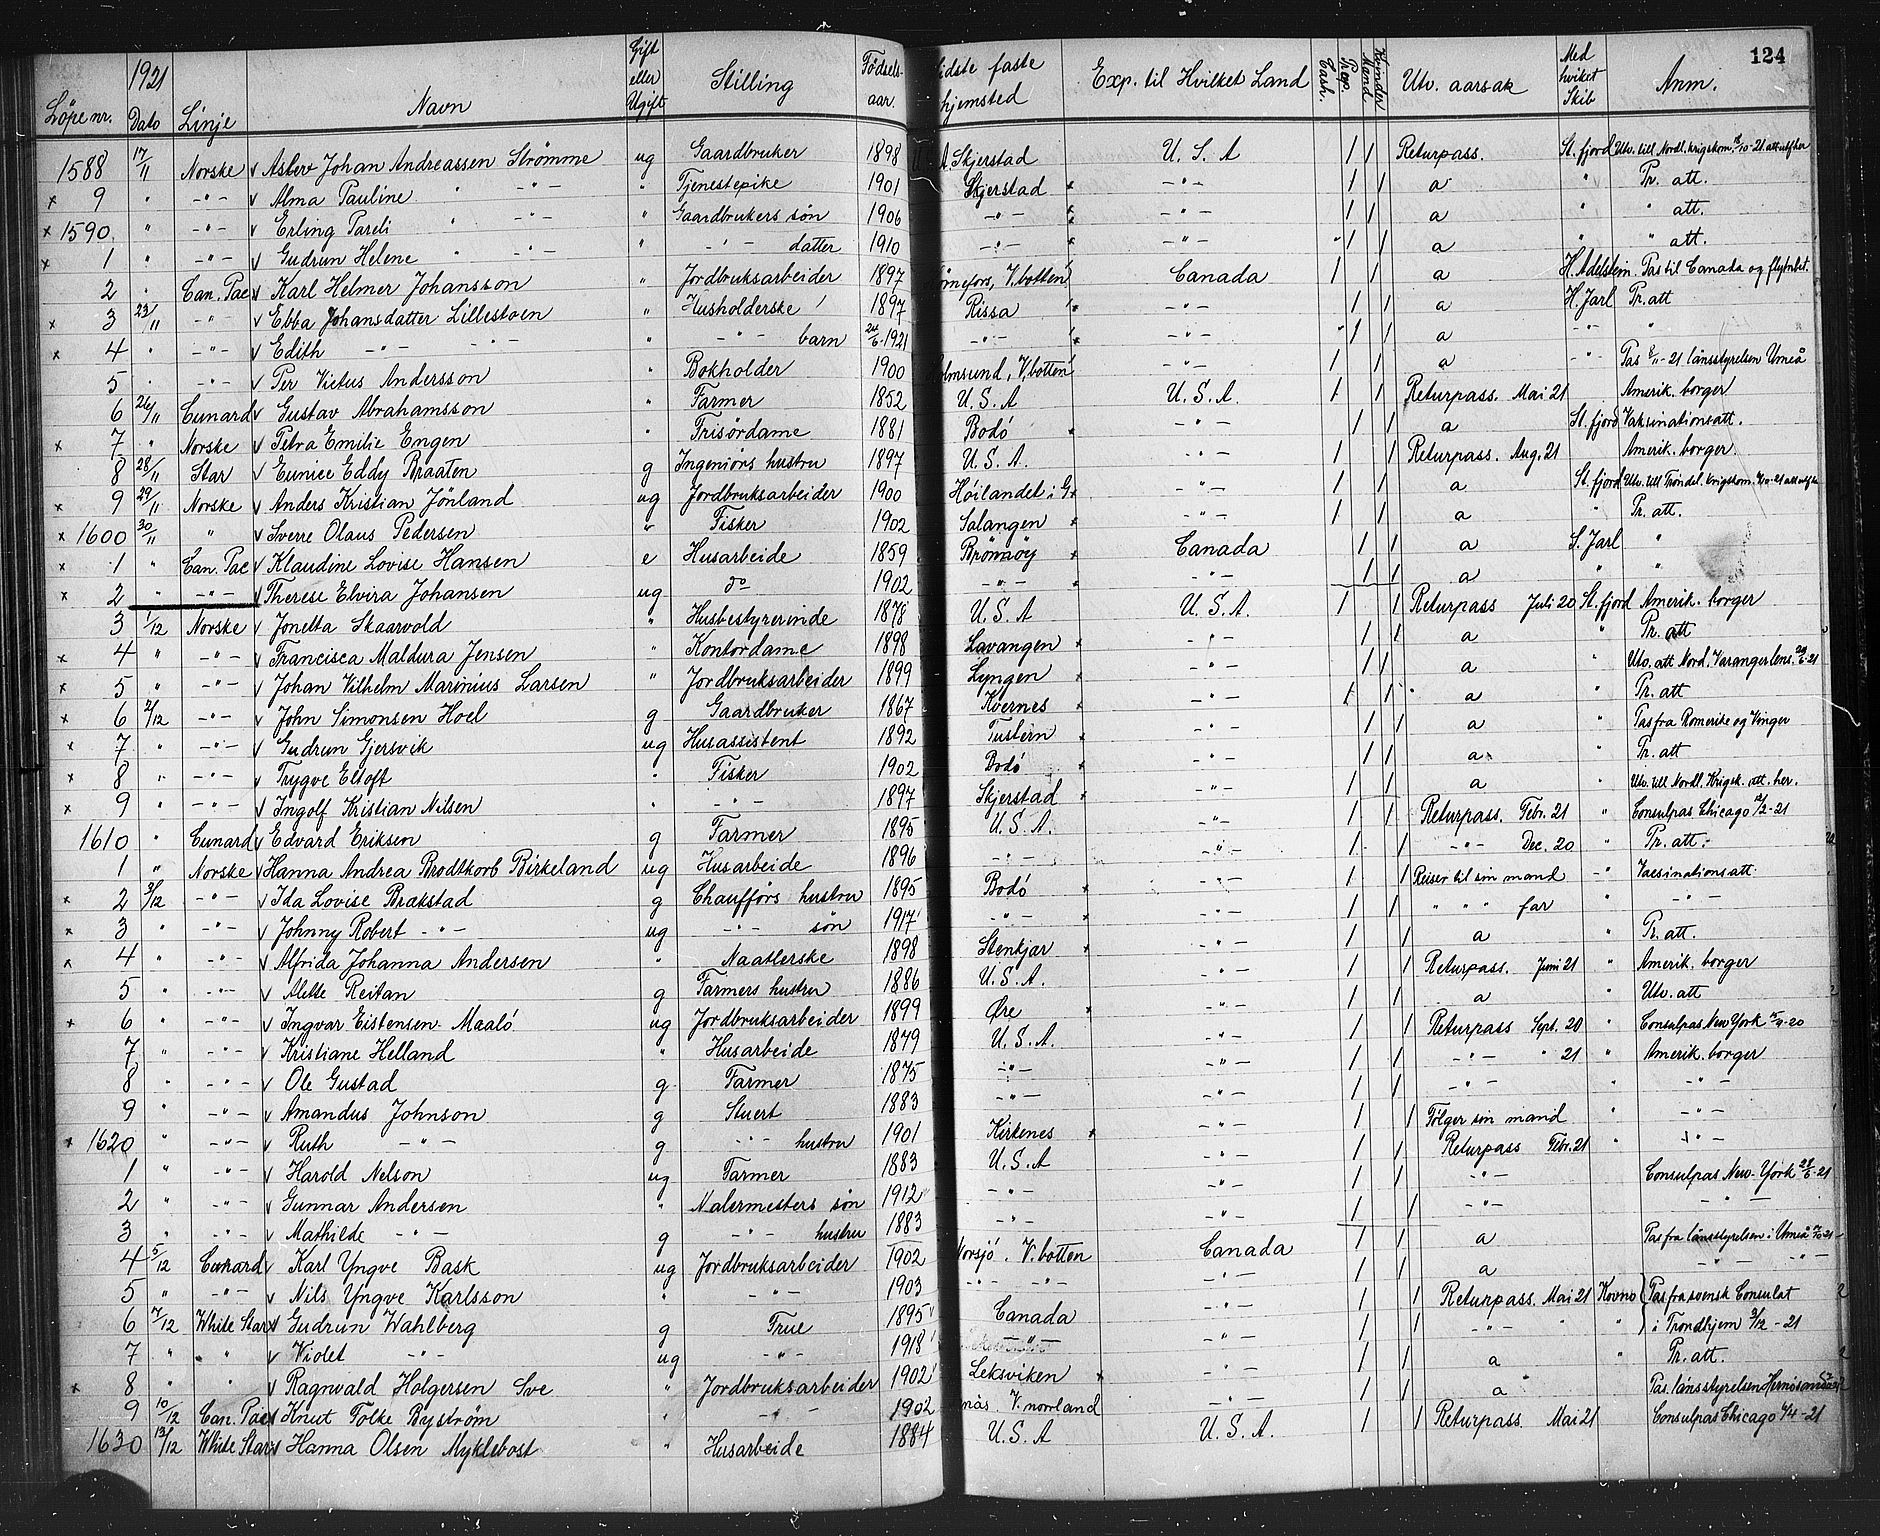 124
1921
Löpe nr. Dato Linje Navn Gift eller Ugift Stilling Födsels-aar. Sidste faste hjemsted Exp. til Hvilket Land Cash. Prep. Mænd Kvinder Utv. aarsak Med hvilket Skib Anm.
1588 17/11 Norske Asbert Johan Andreassen Strömme ug Gaardbruker 1898 Skjerstad U.S.A / / Returpass. St. fjord Utv. till Nordl. krigskom.
x 9 " -"- Alma Pauline " -"- " Tjenestepike 1901 Skjerstad x -"- / / a " Pr. att.
x 1590 " -"- Erling Pareli " -"- " Gaardbrukers sön 1906 -"- x -"- / / a " " att.
x 1 " -"- Gudrun Helene " -"- " -"- datter 1910 -"- x -"- / / a " " att.
2 " Can. Pac Karl Helmer Johansson " Jordbruksarbeider 1897 Hörnefors, V. botten Canada / / a H. Adelstein. Pas til Canada og flytnbet.
x 3 23/11 -"- Ebba Johansdatter Lillestoen " Husholderske 1897 Rissa x -"- / / a H. Jarl Pr. att
x 4 " -"- Edith -"- -"- " -"- barn 24/6-1921 -"- x -"- / / a -"- "
5 " -"- Per Vietus Andersson " Bokholder 1900 Holmsund, V. botten -"- / / a -"- Pas 8/11-21 länsstyrelsen Umeå
6 26/11 Cunard Gustav Abrahamsson " Farmer 1852 U.S.A U.S.A. / / Returpass. Mai 21 Amerik. borger
x 7 " Norske Petra Emilie Engen " Frisördame 1881 Bodö x -"- / / a St. fjord Vaksinationsatt.
8 28/11 Star Eunice Eddy Braaten g Ingeniörs hustru 1897 U.S.A. -"- / / Returpass. Aug. 21 Amerik. borger.
x 9 29/11 Norske Anders Kristian Jönland ug Jordbruksarbeider 1900 Höilandet i G. x -"- / / a St. fjord Utv. till Tröndel. krigskom.
x 1600 30/11 " Sverre Olaus Pedersen " Fisker 1902 Salangen x -"- / / a " Pr. att.
x 1 " Can. Pac Klaudine Lovise Hansen e Husarbeide 1859 Brönnöy x Canada / / a S. Jarl "
x 2 " -"- Therese Elvira Johansen ug do 1902 -"- x -"- / / a " "
3 1/12 Norske Jonetta Skaarvold " Husbestyrerinde 1878 U.S.A U.S.A. / / Returpass Juli 20 St. fjord Amerik. borger
x 4 " -"- Francisca Maldura Jensen " Kontordame 1898 Lavangen x -"- / / a " Pr. att
x 5 " -"- Johan Vilhelm Marinius Larsen " Jordbruksarbeider 1899 Lyngen x -"- / / a " Utv. att Nord. Varangerlens. 29/6-21
x 6 2/12 -"- John Simonsen Hoel g Gaardbruker 1867 Kvernes x -"- / / a " Pr. att
x 7 " -"- Gudrun Gjersvik ug Husassistent 1892 Tustern x -"- / / a " Pas fra Romerike og Vinger
x 8 " -"- Trygve Eltoft " Fisker 1902 Bodö x -"- / / a " Pr. att
x 9 " -"- Ingolf Kristian Nilsen " -"- 1897 Skjerstad x -"- / / a " Utv. till Nordl. Krigsk. att. her.
1610 " Cunard Edvard Eriksen g Farmer 1895 U.S.A. -"- / / Returpass. Febr. 21 " Consulpas Chicago 12/2-21
1 " Norske Hanna Andrea Brodtkorb Birkeland ug Husarbeide 1896 -"- -"- / / -"- Dec. 20 " Pr. att.
x 2 3/12 -"- Ida Lovise Brakstad g Chaufförs hustru 1895 Bodö x -"- / / Reiser til sin mand -"- Vacsinationsatt.
x 3 " -"- Johnny Robert -"- ug -"- sön 1917 -"- x -"- / / " " " far " -"-
x 4 " -"- Alfrida Johanna Andersen " Naatlerske 1898 Stenkjær x -"- / / a " Pr. att.
5 " -"- Alette Reitan g Farmers hustru 1886 U.S.A. -"- / / Returpass. Juni 21 " Amerik. borger
x 6 " -"- Ingvar Eistensen Maalö ug Jordbruksarbeider 1899 Öre x -"- / / a " Utv. att
7 " -"- Kristiane Helland " Husarbeide 1879 U.S.A. -"- / / Returpass Sept. 20 " Consulpas New York 15/9-20
8 " -"- Ole Gustad g Farmer 1875 -"- -"- / / -"- " 21 " Amerik. borger
9 " -"- Amandus Johnson g Stuert 1883 -"- -"- / / -"- -"-
x 1620 " -"- Ruth -"- g -"- hustru 1901 Kirkenes x -"- / / Fölger sin mand " -"-
1 " -"- Harold Nelson ug Farmer 1883 U.S.A -"- / / Returpass Febr. 21 " -"-
2 " -"- Gunnar Andersen " Malermesters sön 1912 -"- -"- / / -"- Consulpas New-York 28/6-21
3 " -"- Mathilde -"- g -"- hustru 1883 -"- -"- / / -"- -"-
4 5/12 Cunard Karl Yngve Bask ug Jordbruksarbeider 1902 Norsjö. V. botten Canada / / a Pas fra länsstyrelsen i Umeå
5 " -"- Nils Yngve Karlsson " -"- 1903 -"- -"- -"- / / a -"-
6 7/12 White Star Gudrun Wahlberg g Frue 1895 Canada -"- / / Returpass. Mai 21 Kovno Pas fra svensk Consulat
7 " " Violet -"- ug -"- 1918 -"- / / -"- " " i Trondhjem 3/12-21
x 8 " " Ragnvald Holgersen Sve " Jordbruksarbeider 1902 Leksviken x -"- / / a " Pr. att.
9 10/12 Can. Pac Knut Folke Byström " -"- 1902 näs. V. norrland -"- / / a Pas. länsstyrelsen Hernösand
1630 13/12 White Star Hanna Olsen Myklebost " Husarbeide 1884 U.S.A U.S.A. / / Returpass. Mai 21 Consulpas Chicago 4/4-21